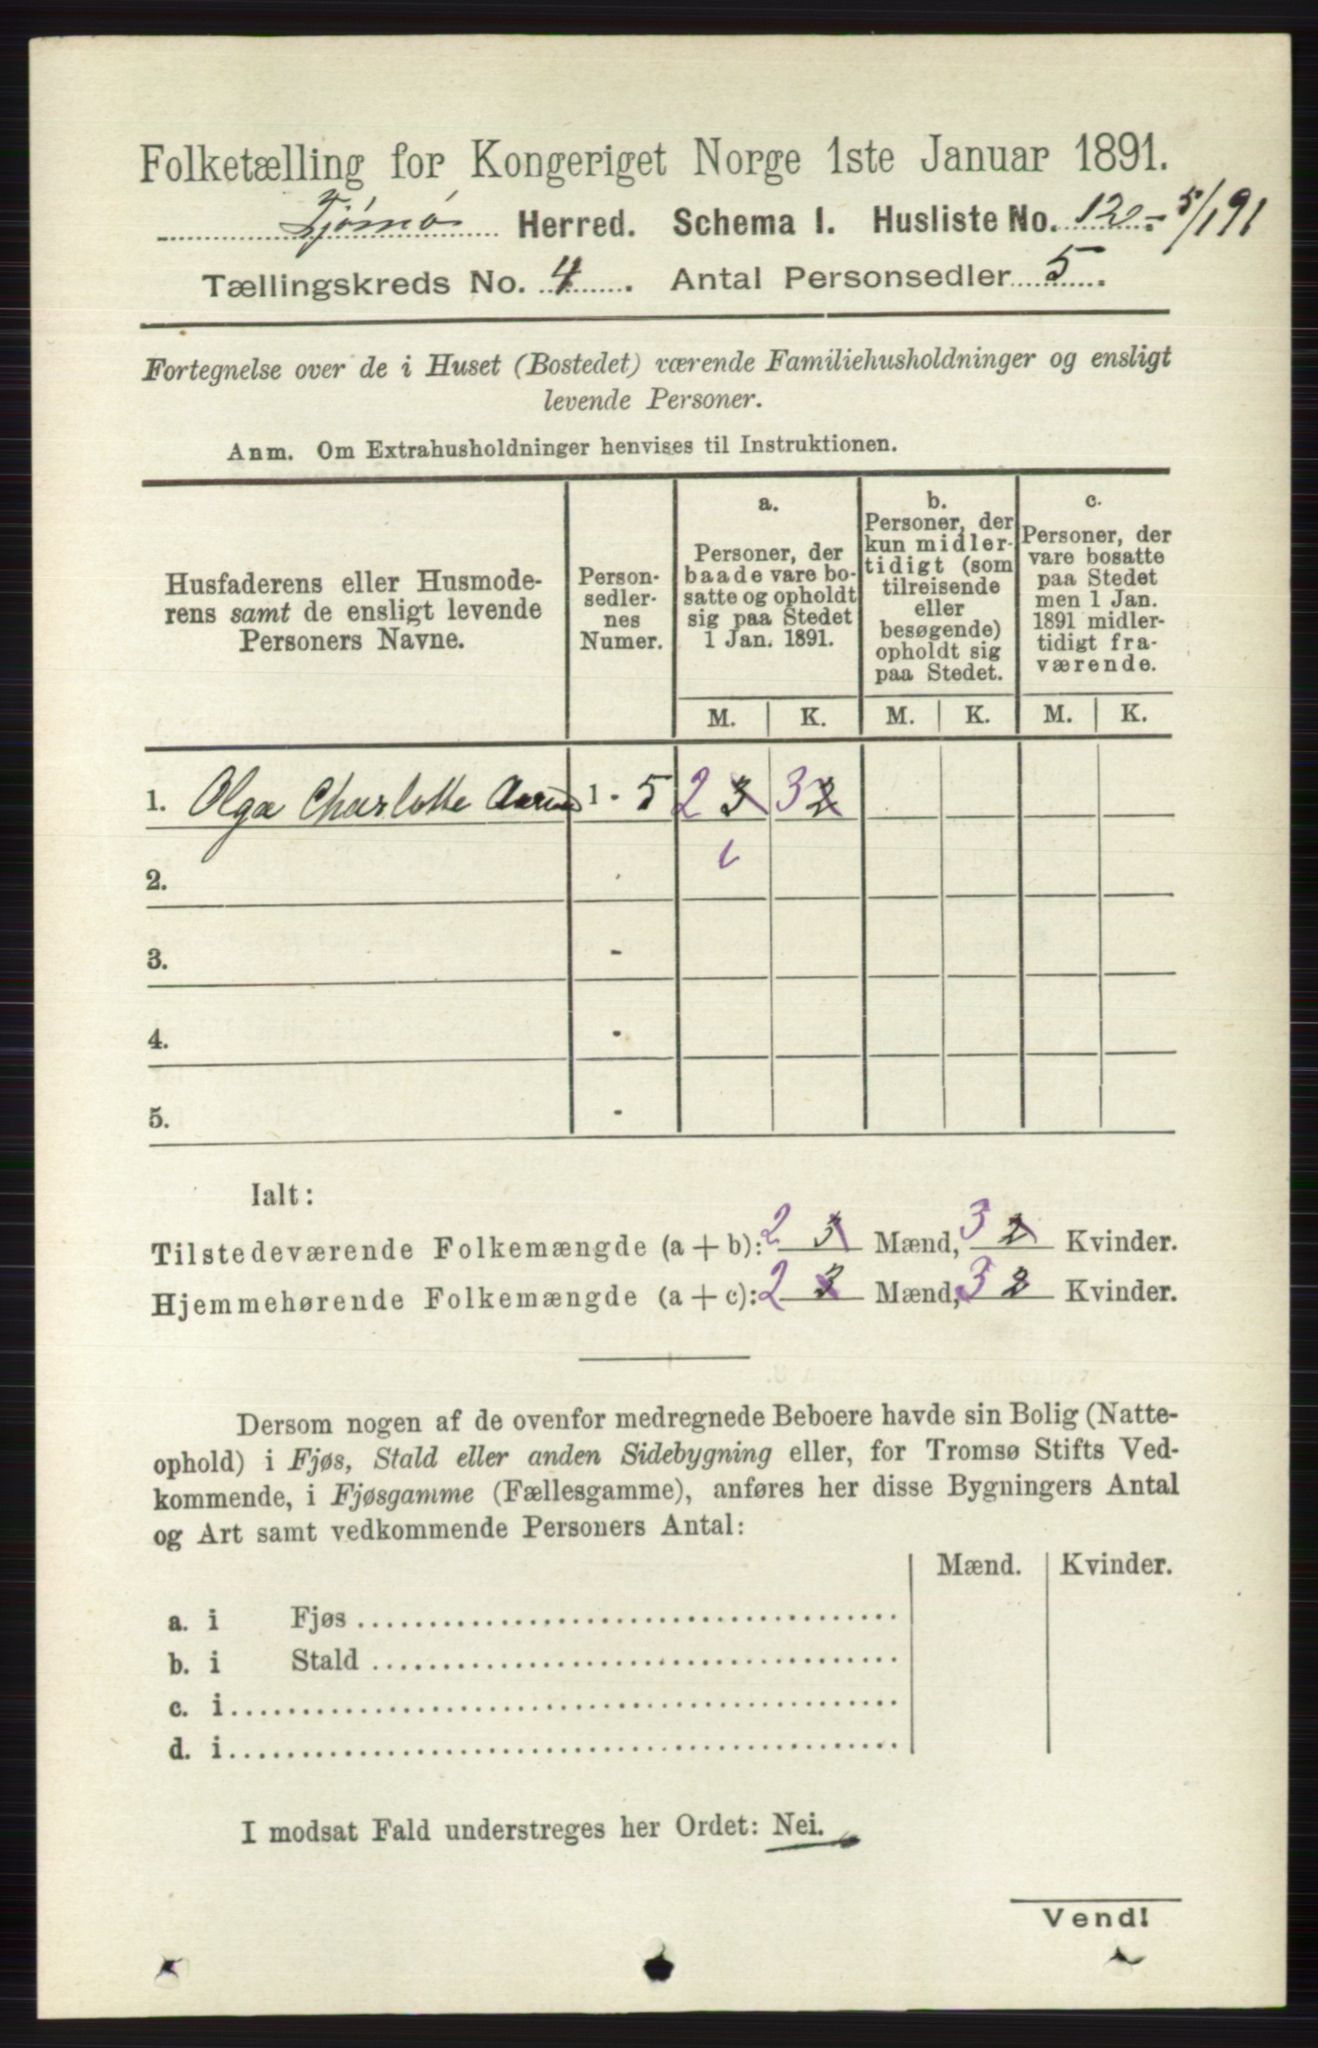 Folketælling for Kongeriget Norge 1ste Januar 1891.
Tjømø Herred. Schema I. Husliste No. 120 - 5/1 91
Tællingskreds No. 4. Antal Personsedler 5.
Fortegnelse over de i Huset (Bostedet) værende Familiehusholdninger og ensligt
levende Personer.
Anm. Om Extrahusholdninger henvises til Instruktionen.
Husfaderens eller Husmode-
rens samt de ensligt levende
Personers Navne.
Person-
sedler-
nes
Numer.
a.
Personer, der
baade vare bo-
satte og opholdt
sig paa Stedet
1 Jan. 1891.
b.
Personer, der
kun midler-
tidigt (som
tilreisende
eller
besøgende)
opholdt sig
paa Stedet.
c.
Personer, der
vare bosatte
paa Stedet
men 1 Jan.
1891 midler-
tidigt fra-
værende.
M. K. M. K. M. K.
1. Olga Charlotte 1 - 5 2 3 3 2
2.
3. -
4. -
5. -
Ialt:
Tilstedeværende Folkemængde (a + b): 2 3 Mænd, 3 2 Kvinder.
Hjemmehørende Folkemængde (a + c): 2 3 Mænd, 3 2 Kvinder.
Dersom nogen af de ovenfor medregnede Beboere havde sin Bolig (Natte-
ophold) i Fjøs, Stald eller anden Sidebygning eller, for Tromsø Stifts Ved-
kommende, i Fjøsgamme (Fællesgamme), anføres her disse Bygningers Antal
og Art samt vedkommende Personers Antal:
Mænd. Kvinder.
a. i Fjøs
b. i Stald
c. i
d. i
I modsat Fald understreges her Ordet: Nei.
Vend!